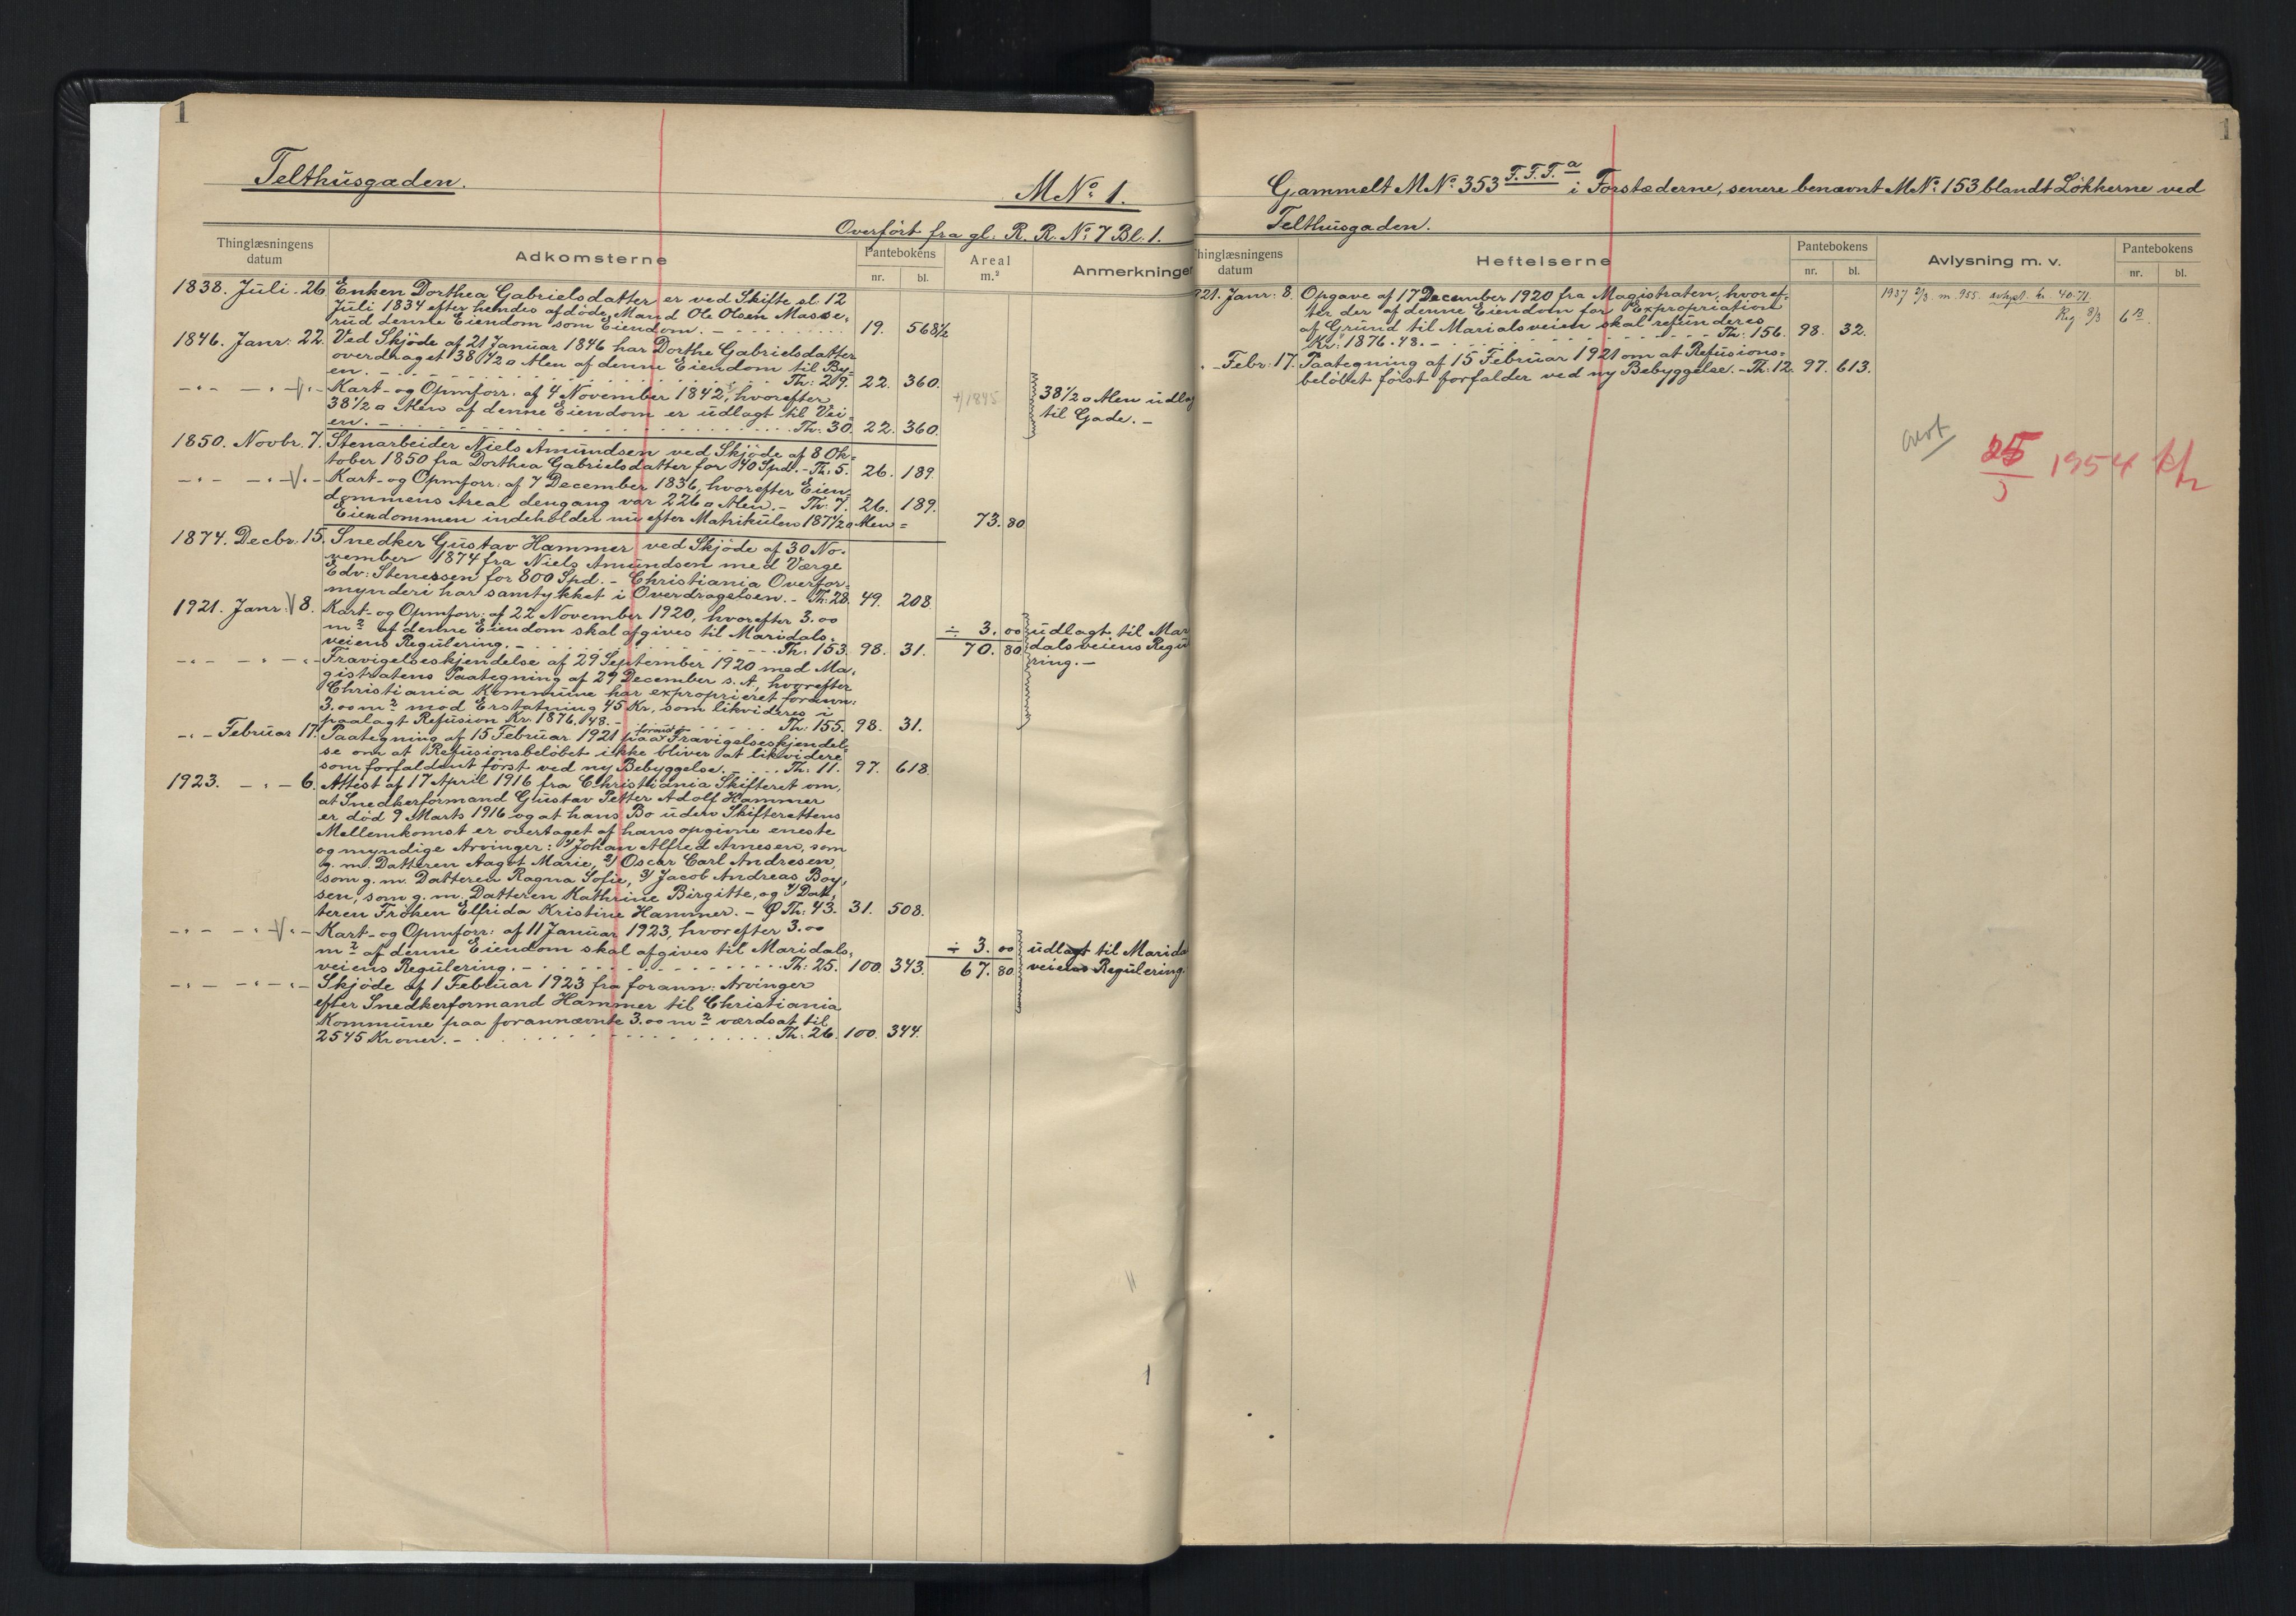 1
Telthusgaden.
M No. 1.
Overført fra gl. R. R. No. 7 Bl. 1.
Thinglæsningens datum
Adkomsterne
Pantebokens
nr. bl.
Areal m.²
Anmerkninger
1838. Juli. 26. Enken Dorthea Gabrielsdatter er ved Skifte sl. 12
Juli 1834 efter hendes afdöde Mand Ole Olsen Masse-
rud denne Eiendom som Eiendom. 19. 568½
1846. Janr: 22. Ved Skjöde af 21 Januar 1846 har Dorthe Gabrielsdatter
overdraget 38½ □ Alen af denne Eiendom til By-
en. Th: 29. 22. 360.
Kart- og Opmforr: af 4 November 1842, hvorefter +) 1845 38½ □ Alen udlag
38½ □ Alen af denne Eiendom er udlagt til Vei- til Gade. –
en. – Th: 30. 22. 360.
1850. Novbr. 7. Stenarbeider Niels Amundsen ved Skjöde af 8 Ok-
tober 1850 fra Dorthea Gabrielsdatter for 140 Spd. – Th: 5. 26. 189.
Kart- og Opmforr: af 7 December 1836, hvorefter Eien-
dommens Areal dengang var 226 □ Alen. – Th: 7. 26. 189.
Eiendommen indeholder nu efter Matrikulen 187½ □ Alen = 73.80
1874. Decbr: 15. Snedker Gustav Hammer ved Skjöde af 30 No-
vember 1874 fra Niels Amundsen med Værge
Edv: Stenessen for 800 Spd. – Christiania Overfor-
mynderi har samtykket i Overdragelsen. – Th: 28. 49. 208.
1921. Janr: 8. Kart- og Opmforr: af 22 November 1920, hvorefter 3.00
m² af denne Eiendom skal afgives til Maridals- ÷ 3.00 udlagt til Mar
veiens Regulering. – Th: 153. 98. 31. 70.80 dalsveiens Regu
Fravigelseskjendelse af 29 September 1920 med Ma- ring. –
gistratens Paategning af 29 December s. A., hvorefter
Christiania Kommune har exproprieret forann:
3.00 m² mod Erstatning 45 Kr, som likvideres i
paalagt Refusion Kr. 1876.48. – Th: 155. 98. 31.
– Februar 17. Paategning af 15 Februar 1921 paa forann: Fravigelseskjendel-
se om at Refusionsbelöbet ikke bliver at likvidere
som forfaldent först ved ny Bebyggelse. – Th: 11. 97. 613.
1923. – 6. Attest af 17 April 1916 fra Christiania Skifteret om,
at Snedkerformand Gustav Petter Adolf Hammer
er död 9 Marts 1916 og at hans Bo uden Skifterettens
Mellemkomst er overtaget af hans opgivne eneste
og myndige Arvinger: 1) Johan Alfred Arnesen, som
g. m. Datteren Aagot Marie, 2) Oscar Carl Andresen,
som g. m. Datteren Ragna Sofie, 3) Jacob Andreas Boy-
sen, som g. m. Datteren Kathrine Birgitte, og 4) Dat-
teren Fröken Elfrida Kristine Hammer. – Th: 43. 31. 508.
Kart- og Opmforr: af 11 Januar 1923, hvorefter 3.00
m² af denne Eiendom skal afgives til Maridals- ÷ 3.00 udlagt til Marida
veiens Regulering. – Th: 25. 100. 343. 67.80 veiens Regulering.
Skjöde af 1 Februar 1923 fra forann: Arvinger
efter Snedkerformand Hammer til Christiania
Kommune paa forannævnte 3.00 m² værdsat til
2545 Kroner. – Th: 26. 100. 344.
1
Gammelt M No. 353 T.T.T.a i Forstæderne, senere benævnt M No: 153 blandt Lökkerne ved
Telthusgaden.
hinglæsningens datum
Heftelserne
Pantebokens
nr. bl.
Avlysning m. v.
Pantebokens
nr. bl.
921. Janr: 8. Opgave af 17 December 1920 fra Magistraten, hvoref-
ter der af denne Eiendom for Expropriation
af Grund til Marialsveien skal refunderes
Kr: 1876.48. – Th: 156. 98. 32.
1937 2/3 m. 955. avlyst. kr. 40.71
Reg 8/3 6
– Febr: 17. Paategning af 15 Februar 1921 om at Refusions-
belöbet först forfalder ved ny Bebyggelse. – Th: 12. 97. 613.
25/5 1954